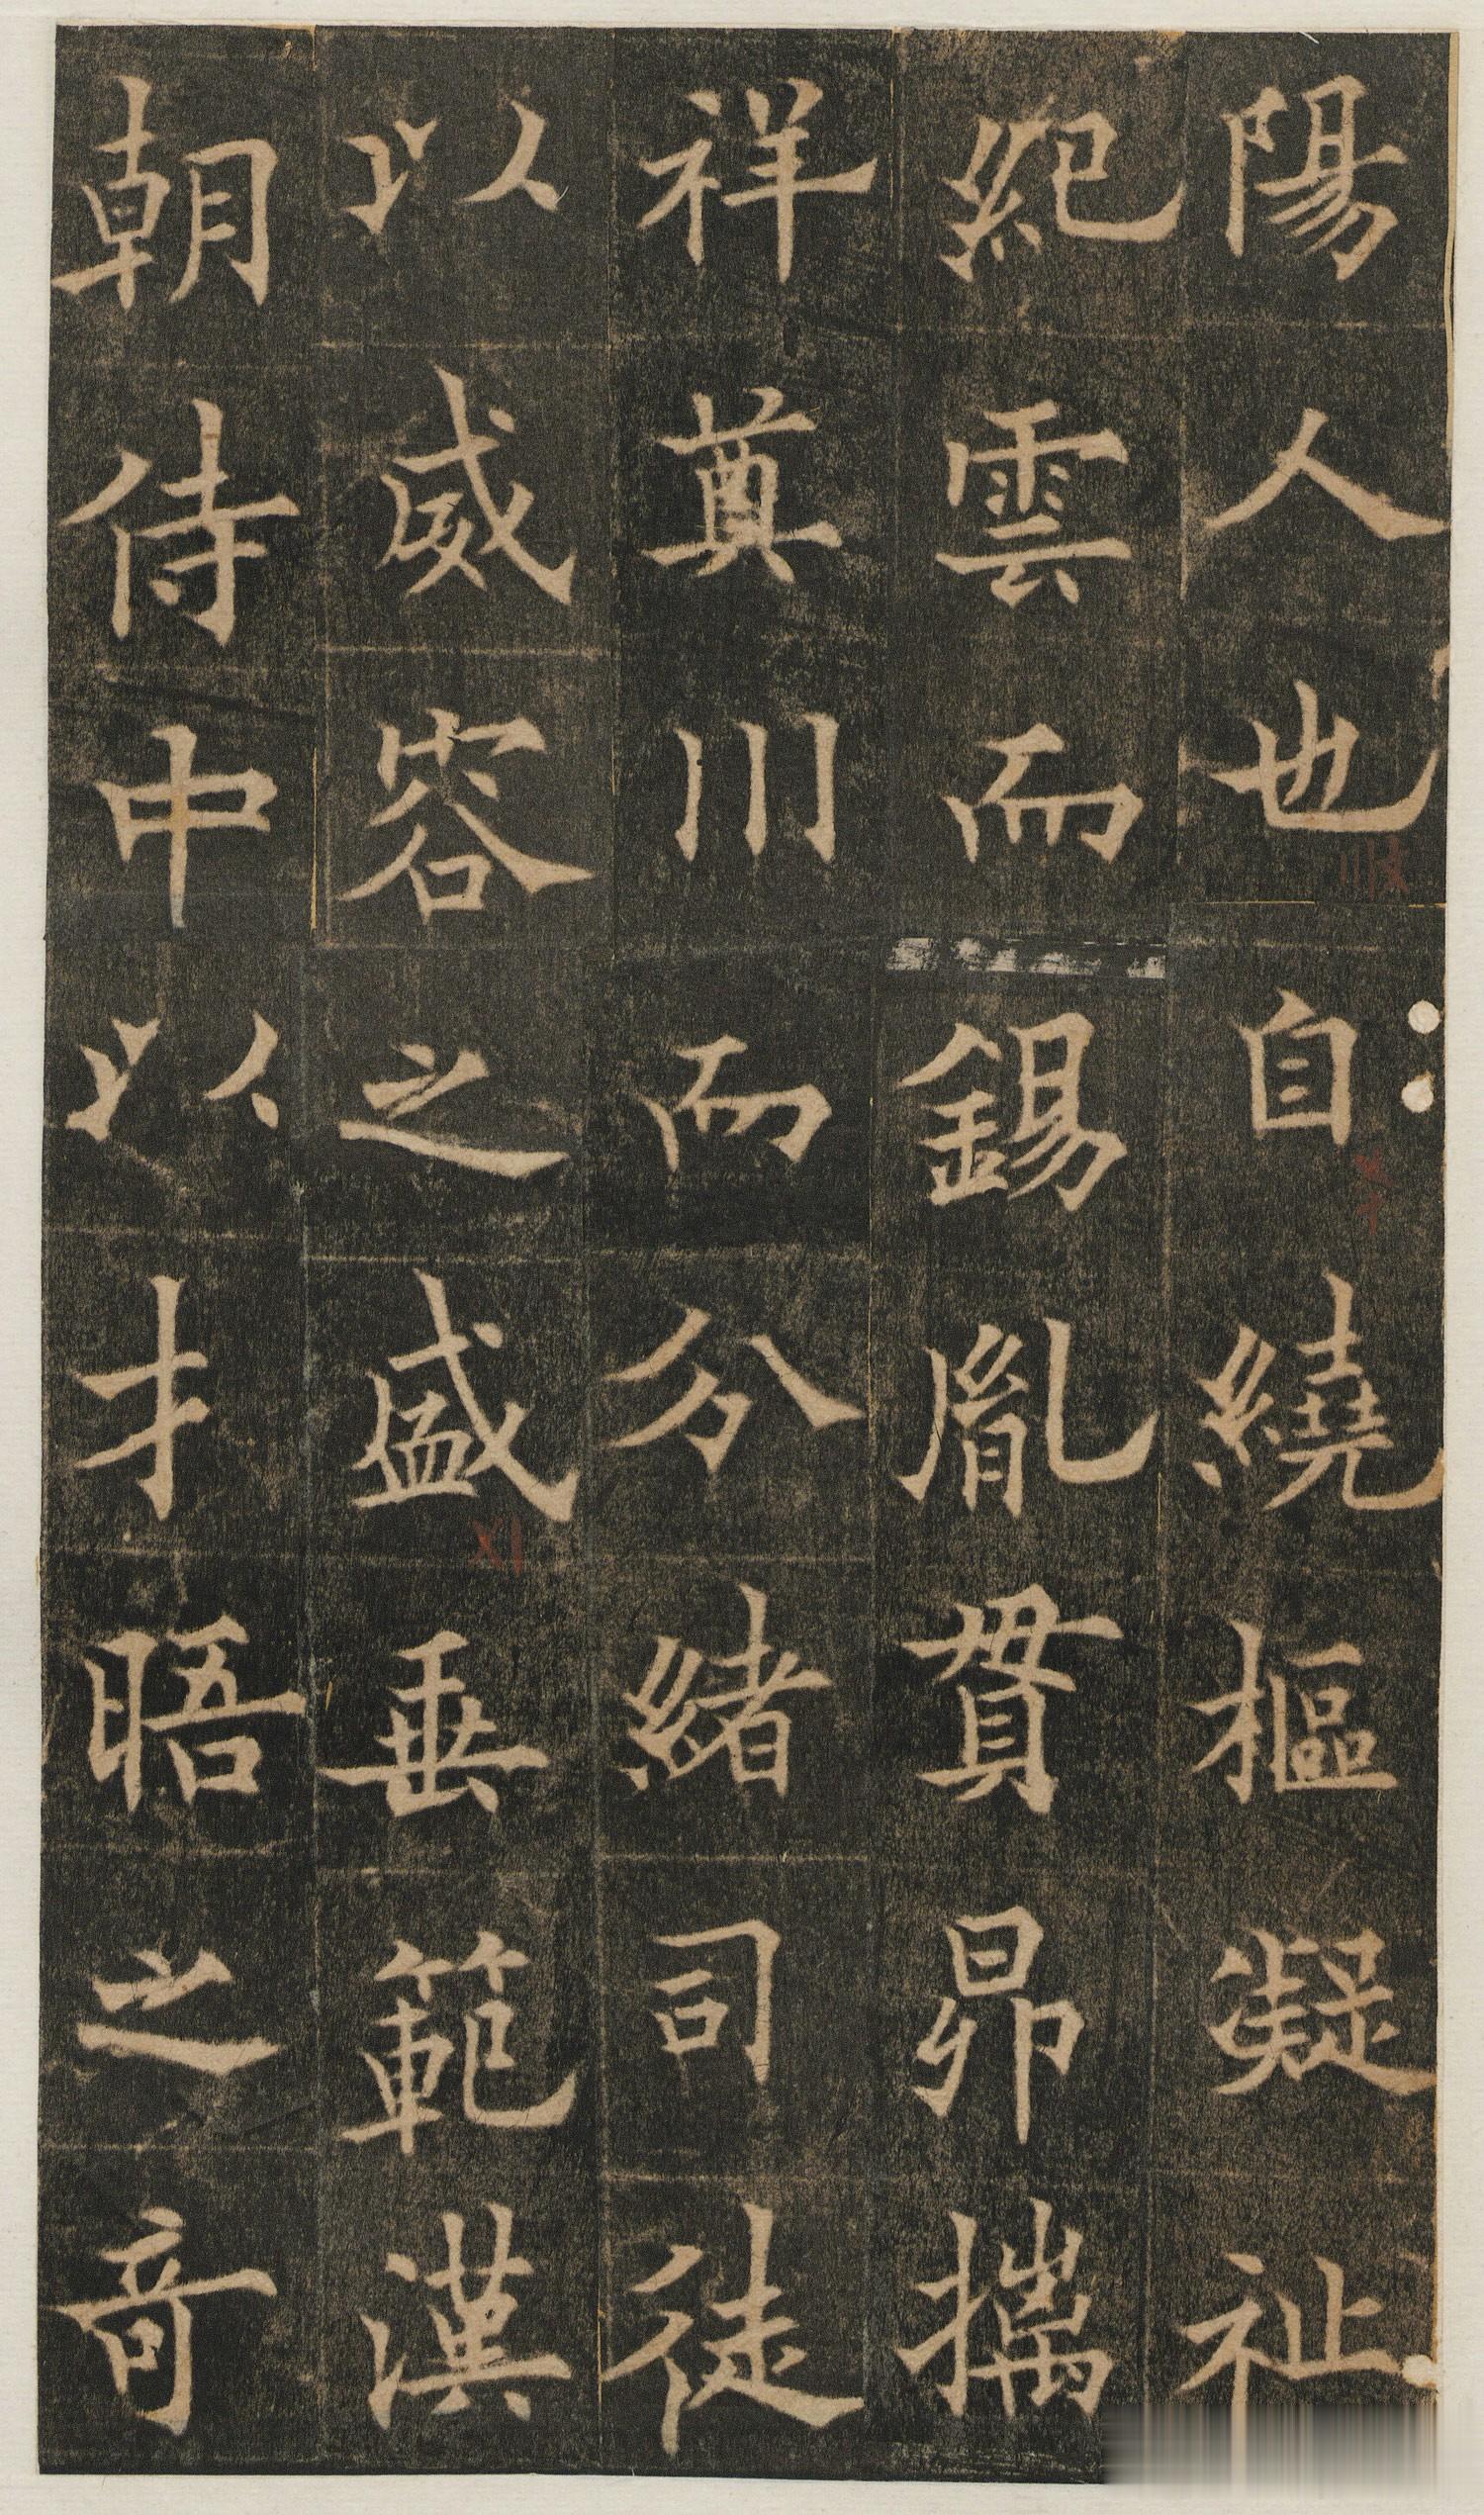 陽人也自繞樞凝祉
紀雲而錫胤貫昴摛
祥奠川而分緒司徒
以威容之盛垂範漢
朝侍中以才晤之竒